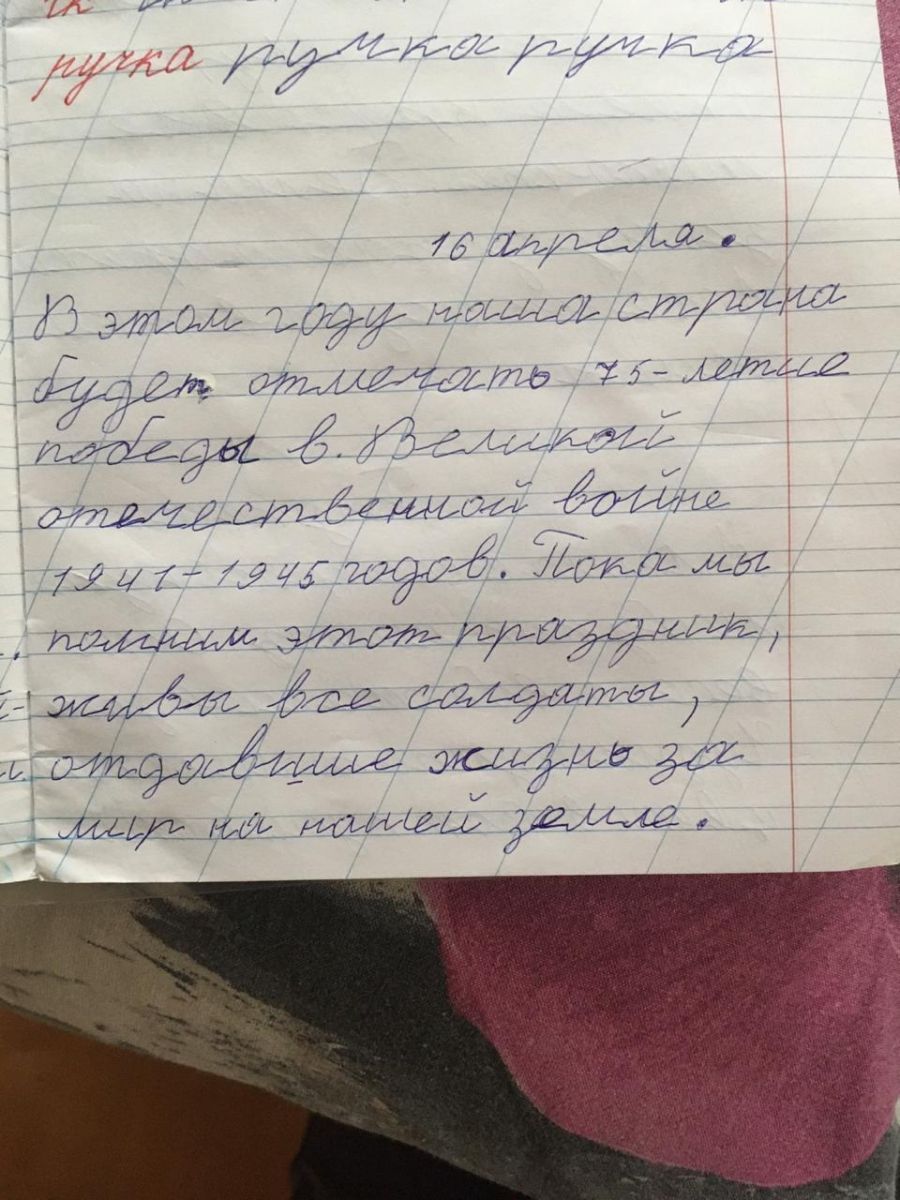 ручка ручка ручка
16 апреля.
В этом году наша страна
будет отмечать 75-летие
победы в. Великой
отечественной войне
1941-1945 годов. Пока мы
помним этот праздник,
живы все солдаты,
отдавшие жизнь за
мир на нашей земле.